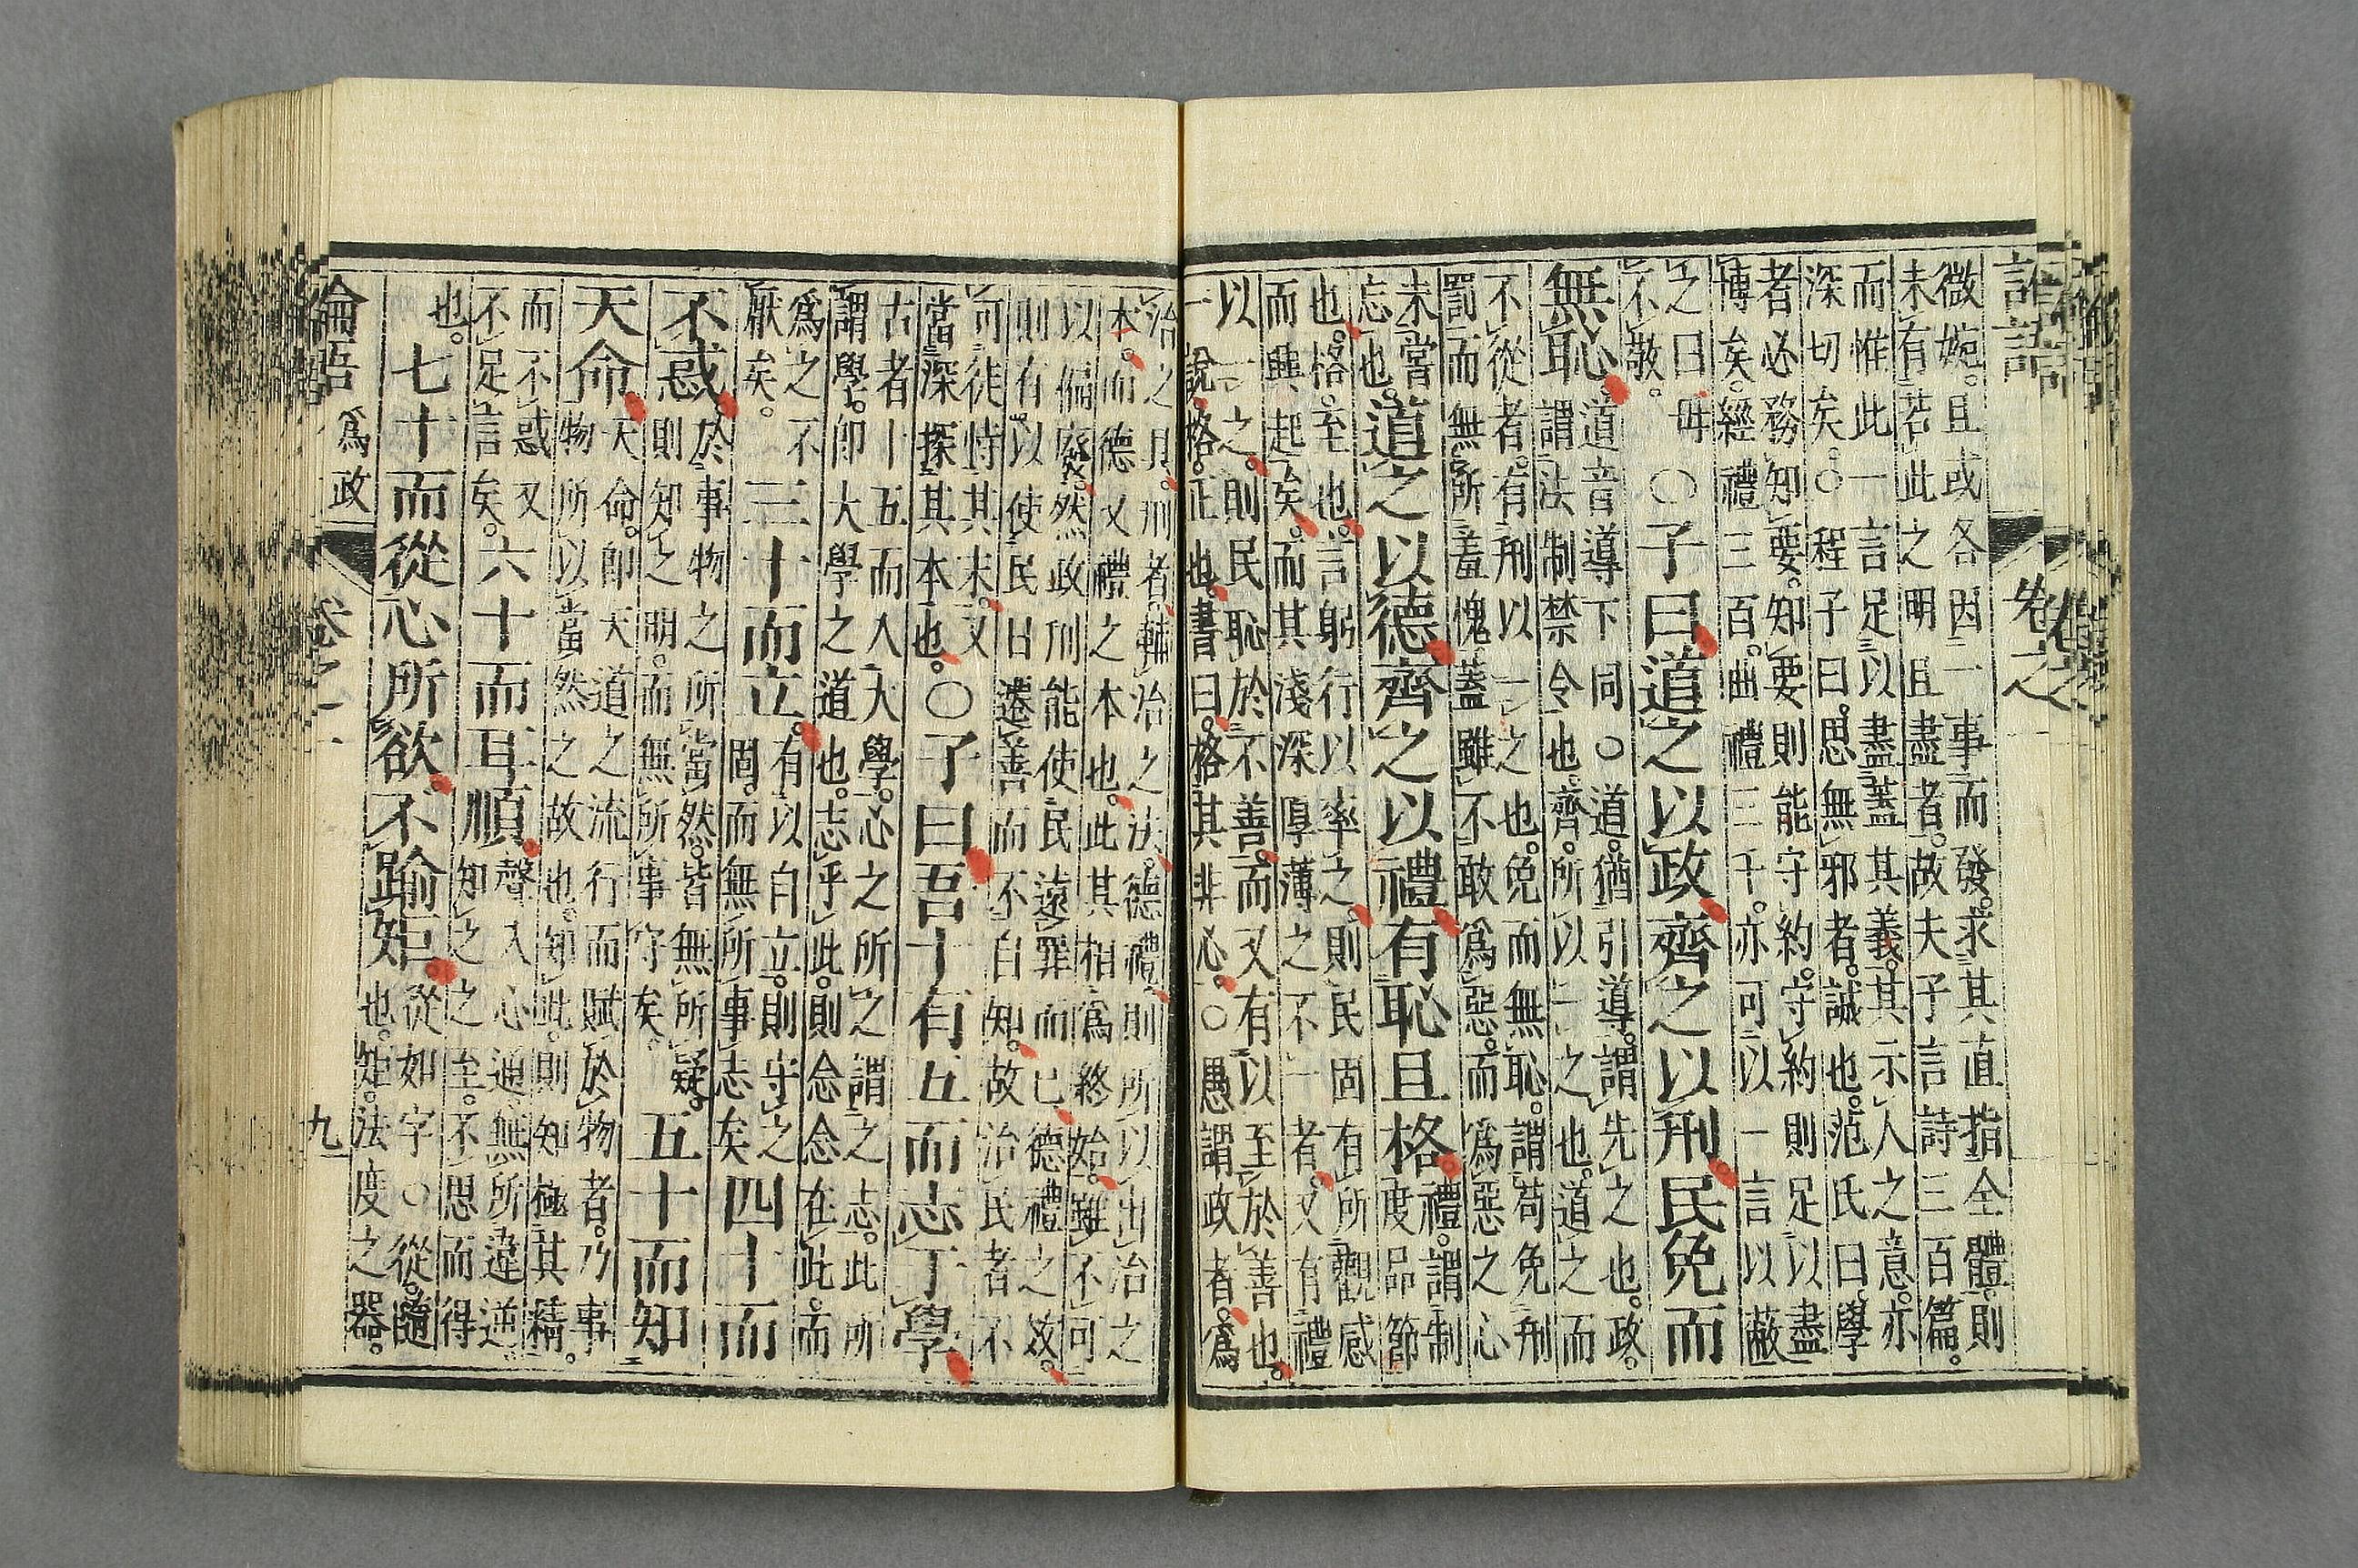 論語 卷之
微婉。且或各因一事而發。求其直指全體。則
未有若此之明且盡者。故夫子言詩三百篇。
而惟此一言足以盡蓋其義。其示人之意。亦
深切矣。○程子曰。思無邪者。誠也。范氏曰。學
者必務知要。知要則能守約。守約則足以盡
博矣。經禮三百。曲禮三千。亦可以一言以蔽
之曰毋不敬。○子曰道之以政齊之以刑民免而
無恥。道音導下同○道。猶引導。謂先之也。政。謂法制禁令也。齊。所以一之也。道之而
不從者。有刑以一之也。免而無恥。謂苟免刑
罰。而無所羞愧。蓋雖不敢爲惡。而爲惡之心
未嘗忘也。道之以德齊之以禮有恥且格禮。謂制度品節
也。格。至也。言躬行以率之。則民固有所觀感
而興起矣。而其淺深厚薄之不一者。又有禮
以一之。則民恥於不善。而又有以至於善也。
一說。格。正也。書曰。格其非心。○愚謂政者。爲
治之具。刑者。輔治之法。德禮。則所以出治之
本。而德又禮之本也。此其相爲終始。雖不可
以偏廢。然政刑能使民遠罪而已。德禮之效。
則有以使民日遷善而不自知。故治民者不
可徒恃其末。又當深探其本也。○子曰吾十有五而志于學
古者十五而入大學。心之所之謂之志。此所
謂學。卽大學之道也。志乎此。則念念在此。而
爲之不厭矣。三十而立。有以自立。則守之固。而無所事志矣四十而
不惑於事物之所當然。皆無所疑。則知之明。而無所事守矣。五十而知
天命天命。卽天道之流行而賦於物者。乃事物所以當然之故也。知此。則知極其精。
而不惑又不足言矣。六十而耳順聲入心通。無所違逆知之之至。不思而得
也。七十而從心所欲不踰矩從如字○從。隨也。矩。法度之器。
論語 爲政 卷之一 九